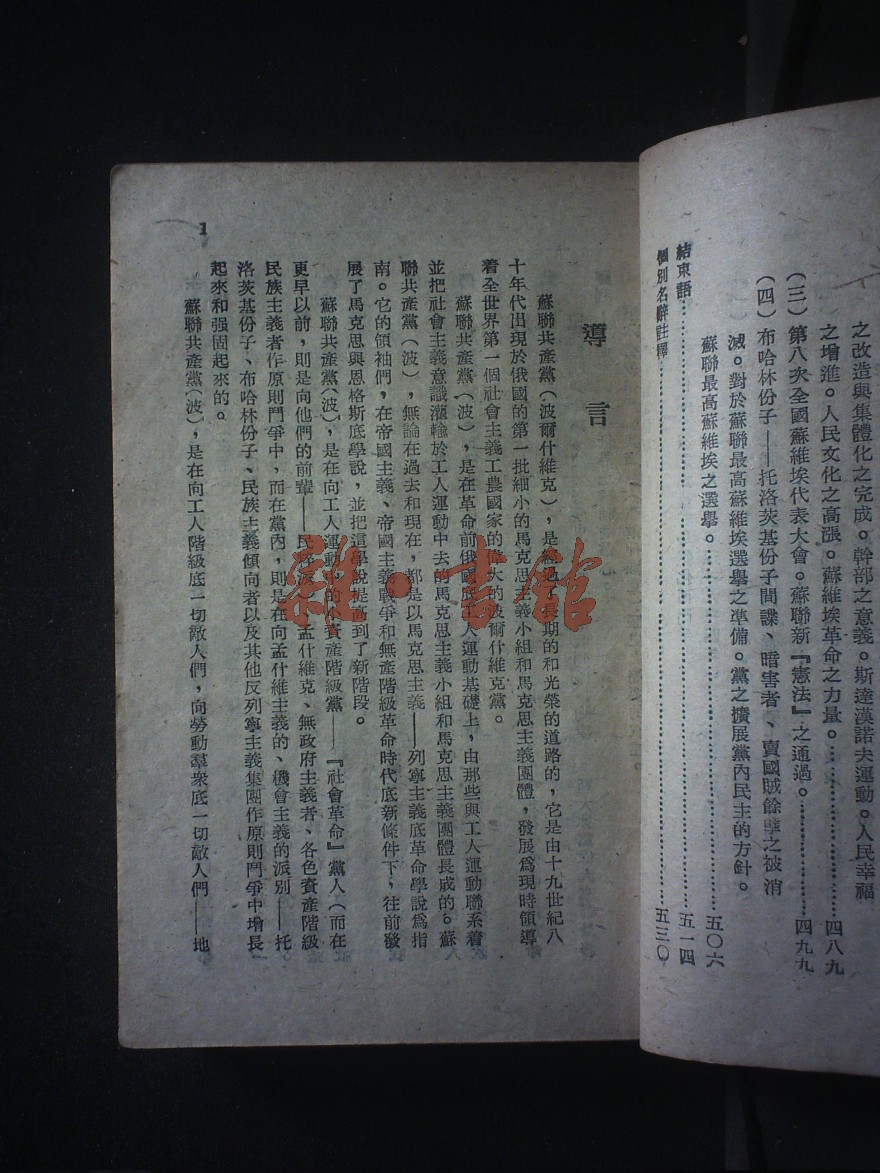 之改造與集體化之完成。幹部之意義。斯達漢諾夫運動。人民幸福
之增進。人民文化之高漲。蘇維埃革命之力量。……………………四八九
（三）第八次全國蘇維埃代表大會。蘇聯新『憲法』之通過。……………………四九九
（四）布哈林份子——托洛茨基份子間諜、暗害者、賣國賊餘孽之被消
滅。對於蘇聯最高蘇維埃選舉之準備。黨之擴展黨內民主的方針。
蘇聯最高蘇維埃之選舉。……………………五〇六
結束語……………………五一四
個別名辭註釋……………………五三〇
導言
蘇聯共產黨（波爾什維克），是經過了長期的和光榮的道路的，它是由十九世紀八
十年代出現於俄國的第一批細小的馬克思主義小組和馬克思主義團體，發展爲現時領導
着全世界第一個社會主義工農國家的偉大的波爾什維克黨。
蘇聯共產黨（波），是在革命前俄國底工人運動基礎上，由那些與工人運動聯系着
並把社會主義意識灌輸於工人運動中去的馬克思主義小組和馬克思主義團體長成的。蘇
聯共產黨（波），無論在過去和現在，都是以馬克思主義——列寧主義底革命學說爲指
南。它的領袖們，在帝國主義、帝國主義戰爭和無產階級革命時代底新條件下，往前發
展了馬克思與恩格斯底學說，並把這學說提高到了新階段。
蘇聯共產黨（波），是在向工人運動中的小資產階級黨——『社會革命』黨人（而在
更早以前，則是向他們的前輩——民粹派）、孟什維克、無政府主義者、各色資產階級
民族主義者作原則鬥爭中，而在黨內，則是在向孟什維主義的、機會主義的派別——托
洛茨基份子、布哈林份子、民族主義傾向者以及其他反列寧主義集團作原則鬥爭中增長
起來和强固起來的。
蘇聯共產黨（波），是在向工人階級底一切敵人們，向勞動羣衆底一切敵人們——地
1
雜·書館